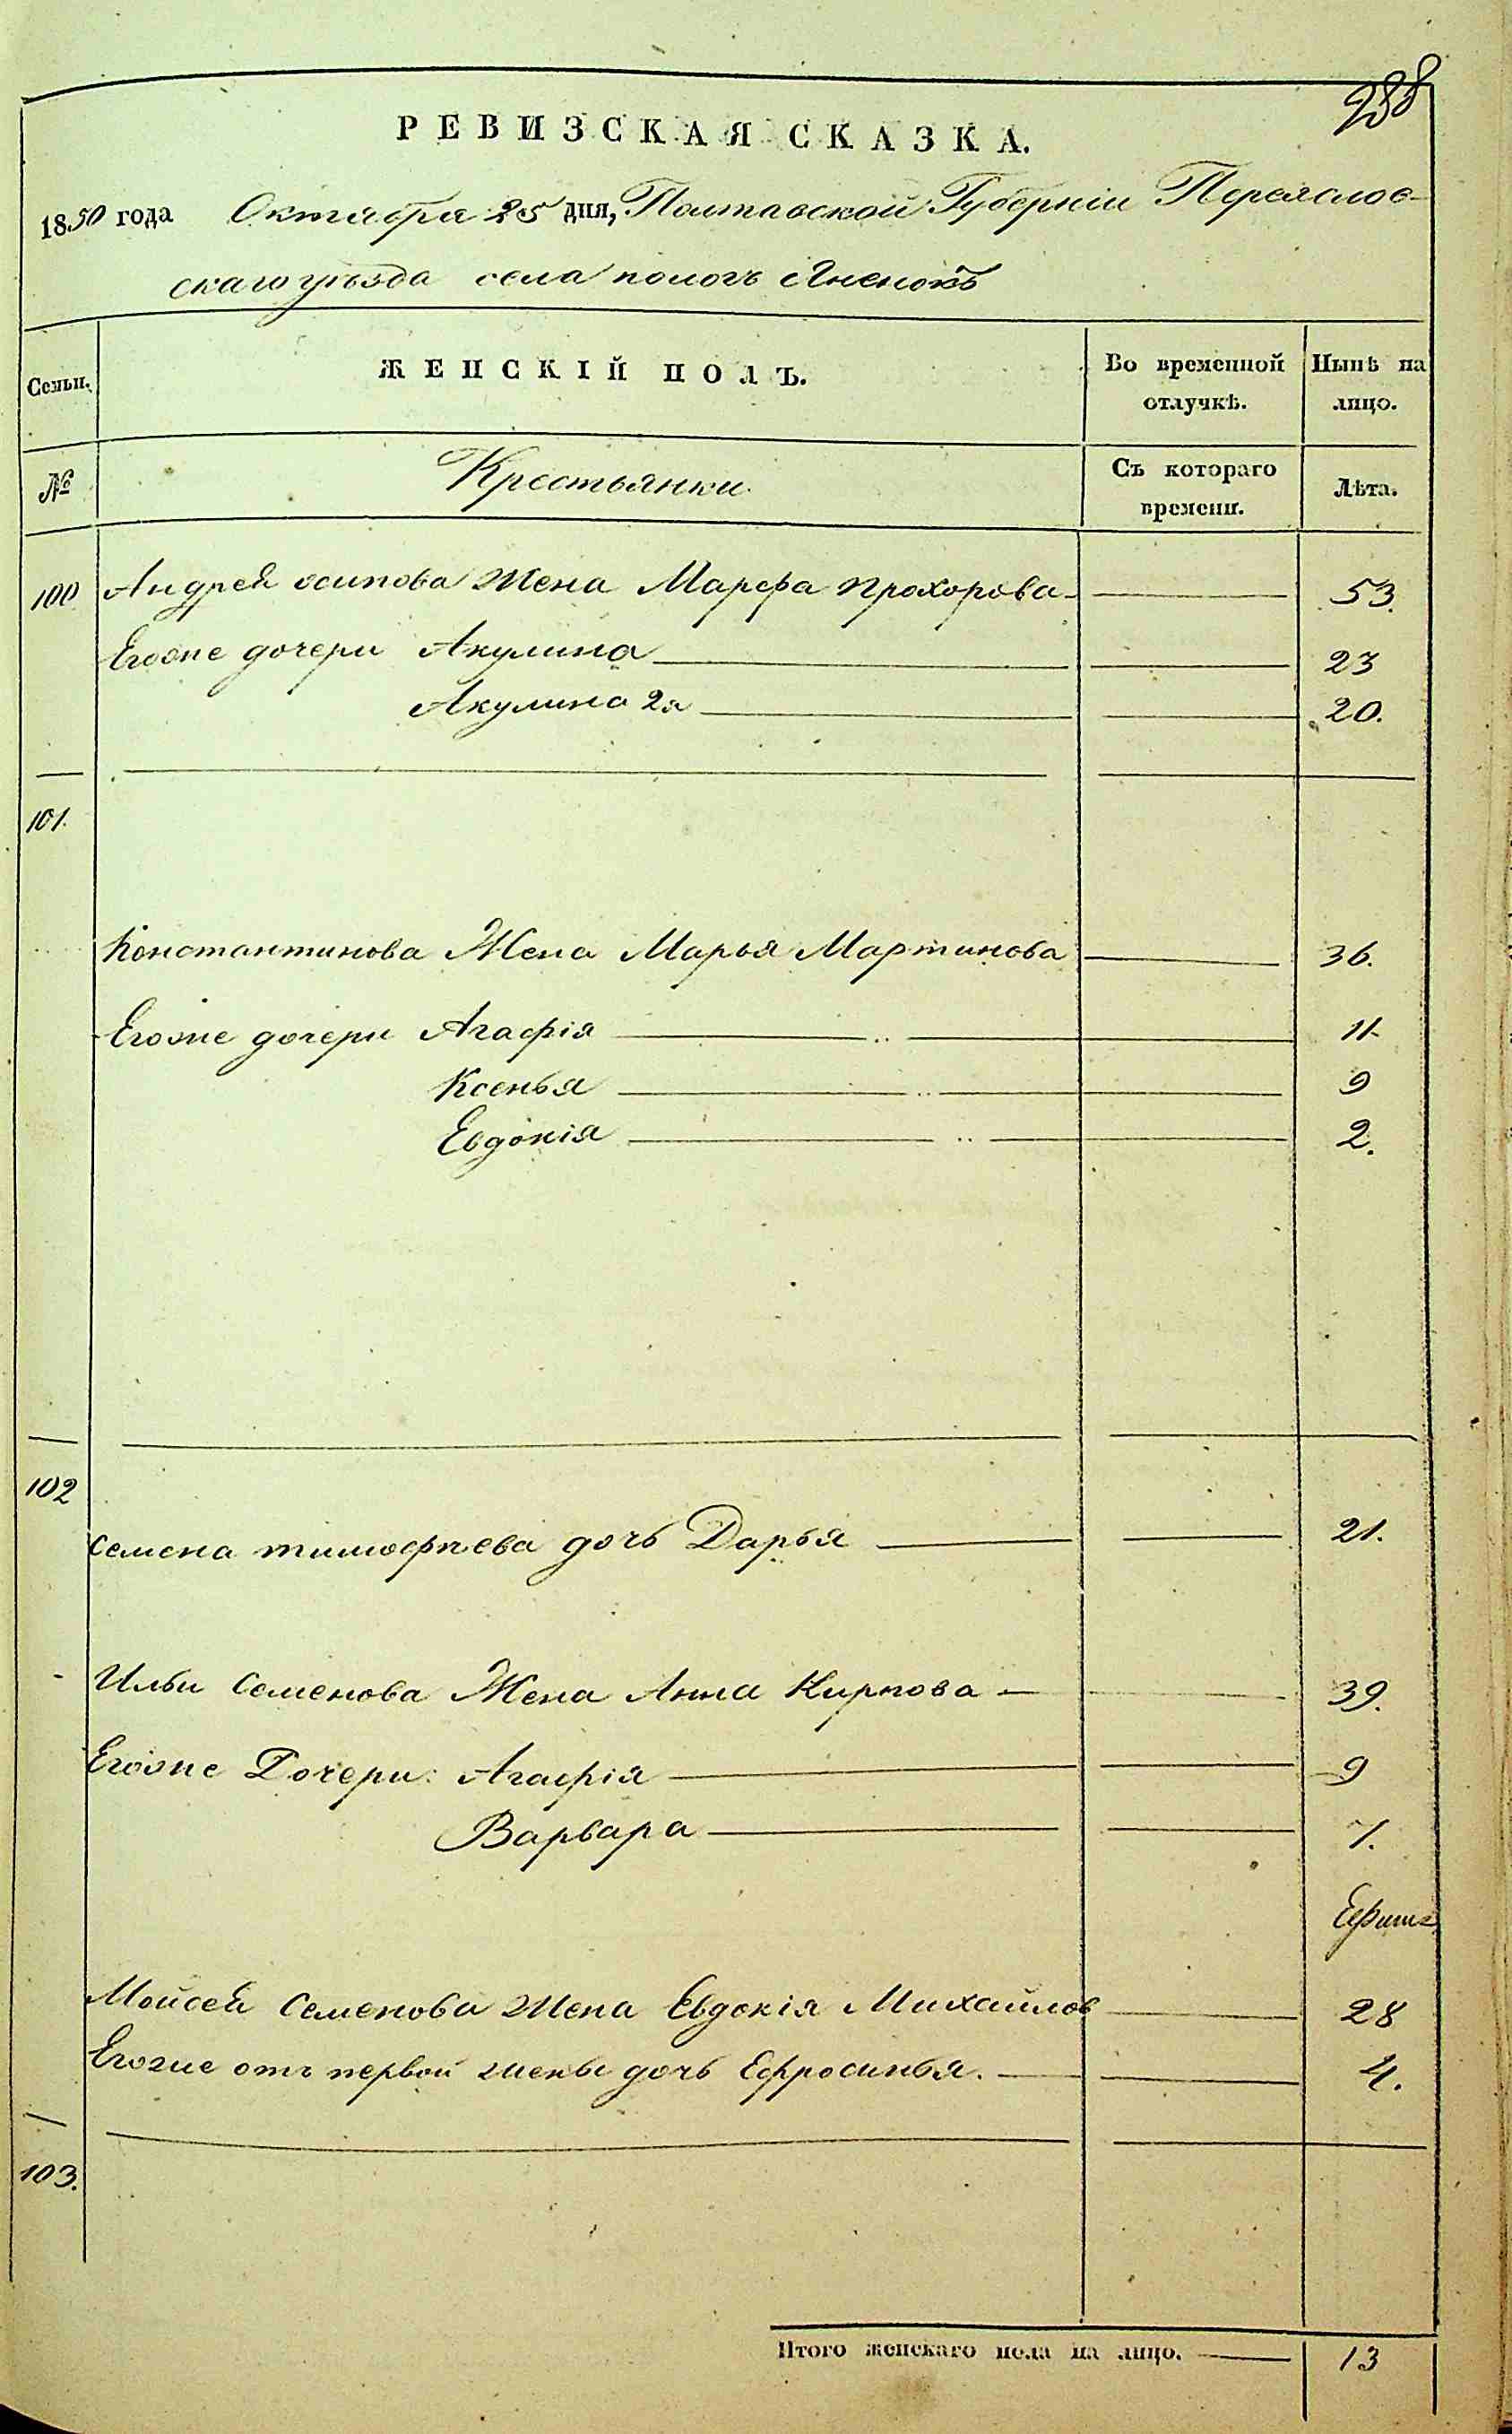 288
РЕВИЗСКАЯ СКАЗКА.
1850 года Октября 25 дня, Полтавской Губерніи Переяслов-
скаго уѣзда села пологъ Яненокъ
Семьи.
ЖЕНСКІЙ ПОЛЪ.
Во временной отлучкѣ.
Нынѣ на лицо.
№
Крестьянки
Съ котораго времени.
Лѣта.
100 Андрея осипова Жена Марфа Прохорова 53.
Егоже дочери Акулина 23
Акулина 2я 20.
101.
Константинова Жена Марья Мартинова 36.
Егоже дочери Агафія 11
Ксенья 9
Евдокія 2.
102
Семена тимофѣева дочь Дарья 21.
Ильи Семенова Жена Анна Карпова 39.
Егоже Дочери: Агафія 9
Варвара 7.
Моисея Семенова Жена Евдокія Михайлов 28
Егоже отъ первой жены дочь Ефросинья. 4.
103.
Итого женскаго пола на лицо. 13